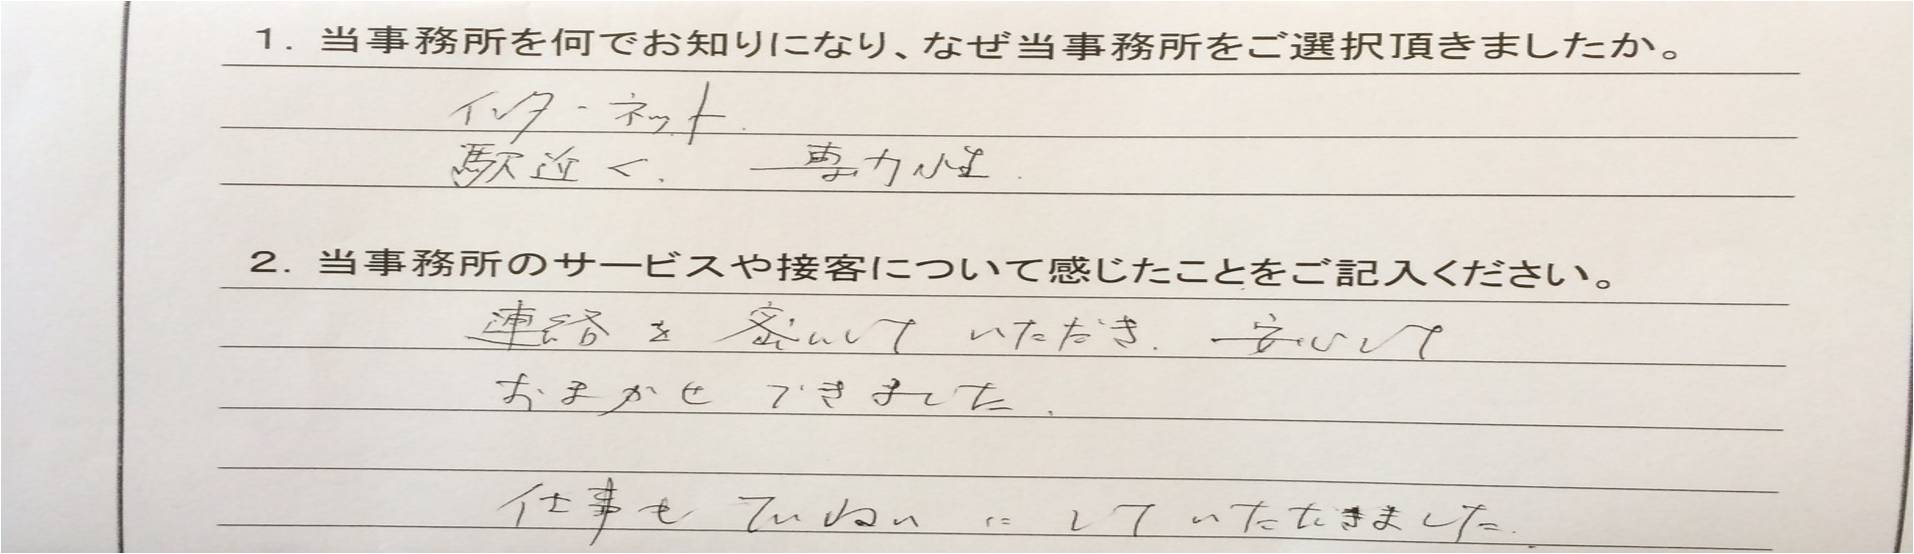 1. 当事務所を何でお知りになり、なぜ当事務所をご選択頂きましたか。
インターネット.
駅近く. 専力性.
2. 当事務所のサービスや接客について感じたことをご記入ください。
連絡を密にしていただき. 安心して
おまかせできました.
仕事もていねいにしていただきました.